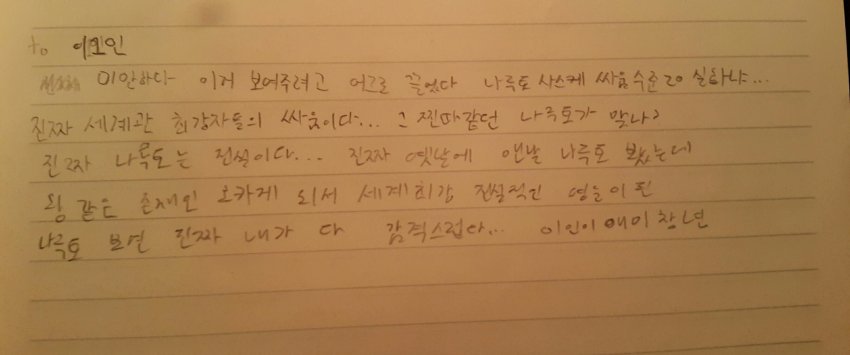 to 이인
미안하다 이거 보여주려고 어그로 끌었다 나루토 사스케 싸움수준 ㄹㅇ 실화냐...
진짜 세계관 최강자들의 싸움이다... 그 찐따같던 나루토가 맞나?
진짜 나루토는 전설이다... 진짜 옛날에 맨날 나루토 봤는데
왕 같은 존재인 호카게 되서 세계최강 전설적인 영웅이된
나루토 보면 진짜 내가 다 감격스럽다... 이인이 애미 창년